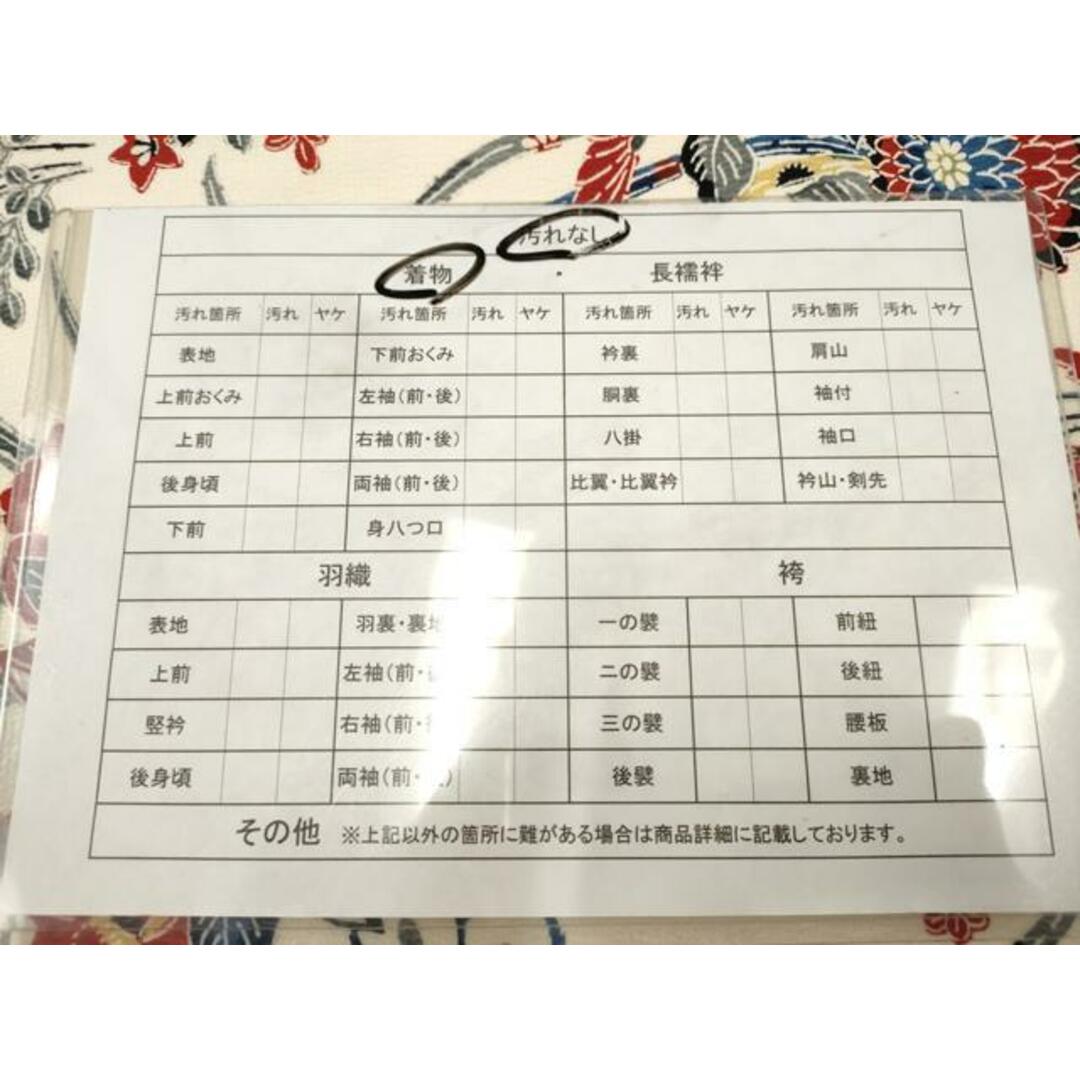 汚れなし
着物 ・ 長襦袢
汚れ箇所 汚れ ヤケ 汚れ箇所 汚れ ヤケ 汚れ箇所 汚れ ヤケ 汚れ箇所 汚れ ヤケ
表地 下前おくみ 衿裏 肩山
上前おくみ 左袖(前・後) 胴裏 袖付
上前 右袖(前・後) 八掛 袖口
後身頃 両袖(前・後) 比翼・比翼衿 衿山・剣先
下前 身八つ口
羽織 袴
表地 羽裏・裏地 一の襞 前紐
上前 左袖(前・ 二の襞 後紐
竪衿 右袖(前・ 三の襞 腰板
後身頃 両袖(前・ ) 後襞 裏地
その他 ※上記以外の箇所に難がある場合は商品詳細に記載しております。